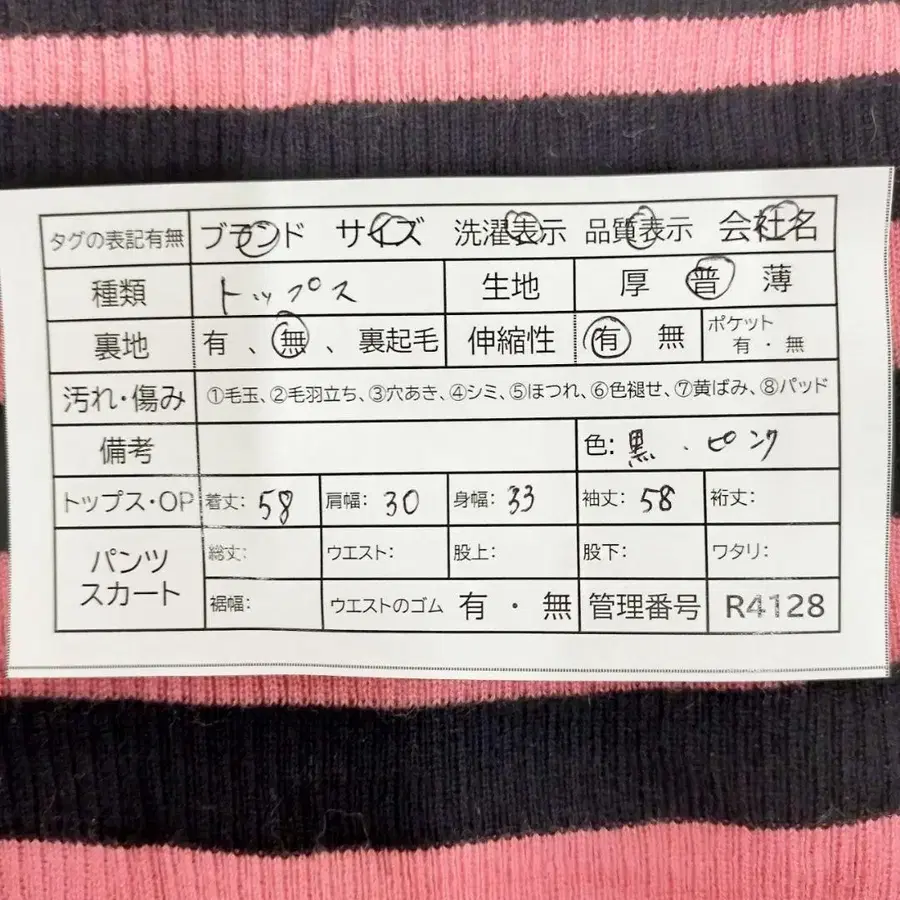 タグの表記有無 ブランド サイズ 洗濯表示 品質表示 会社名
種類 トップス 生地 厚 普 薄
裏地 有 、 無 、 裏起毛 伸縮性 有 無 ポケット 有 ・ 無
汚れ・傷み ①毛玉、②毛羽立ち、③穴あき、④シミ、⑤ほつれ、⑥色褪せ、⑦黄ばみ、⑧パッド
備考 色: 黒 、ピンク
トップス・OP 着丈: 58 肩幅: 30 身幅: 33 袖丈: 58 裄丈:
パンツ スカート 総丈: ウエスト: 股上: 股下: ワタリ:
裾幅: ウエストのゴム 有 ・ 無 管理番号 R4128